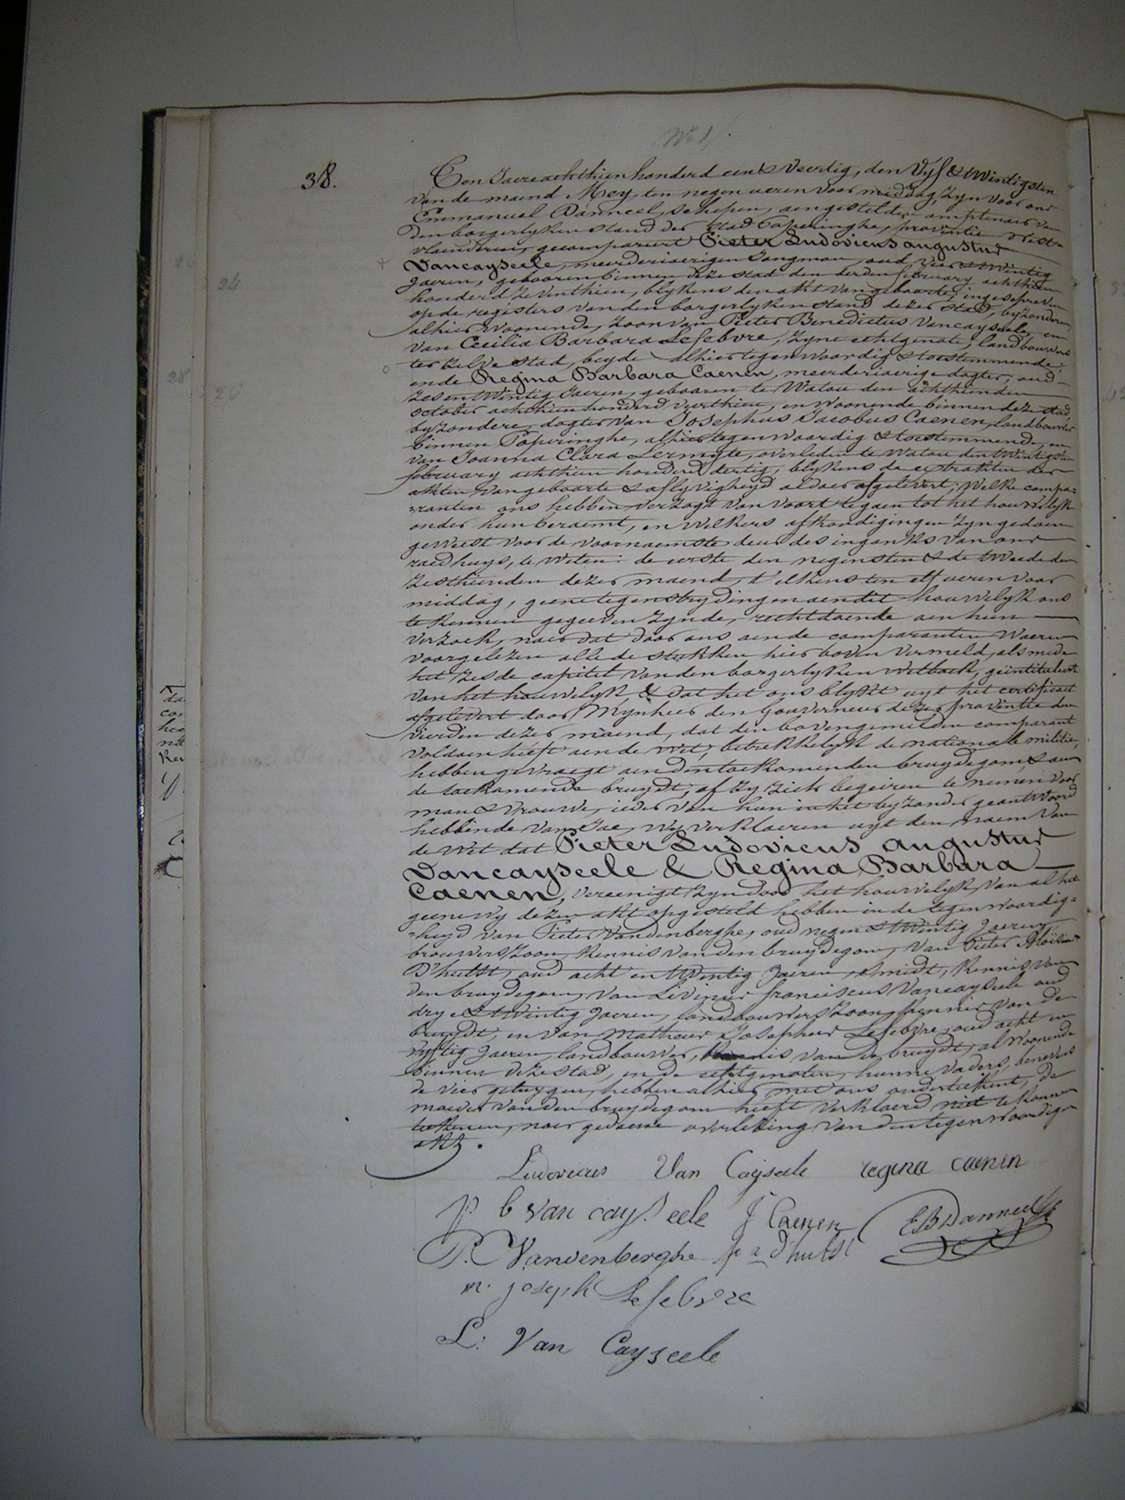 38.
Een Jaere achthien honderd een & veertig, den Vyf & twintigsten
van de maend Mey, ten negen ueren voor middag, zyn voor ons
Emmanuel Danneel, schepen, aengestelden amptenaer van
den borgerlyken stand der stad Poperinghe, provintie West-
vlaenderen, gecompareert Pieter Ludovicus augustus
Vancayseele, meerderjaerigen Jongman, oud vier & twintig
Jaeren, gebooren binnen deze stad den derden february achthien
honderd zeventhien, blykens den akt van geboorte, ingeschreven
op de registers van den borgerlyken stand dezer stad, byzondere,
alhier woonende, zoon van Pieter Benedictus Vancayseele, en
van Cecilia Barbara Lefebvre, zyne echtgenote, landbouwers
ter zelve stad, beyde alhier tegenwoordig & toestemmende;
ende Regina Barbara Caenen, meerderjaerige dogter, oud
zes en twintig Jaeren, gebooren te Watou den achthienden
october achthien honderd veerthien, en woonende binnen deze stad,
byzondere, dogter van Josephus Jacobus Caenen, landbouwer
binnen Poperinghe, alhier tegenwoordig & toestemmende, en
van Joanna Clara Lermyte, overleden te Watou den twintigsten
february achthien honderd dertig, blykens de extrakten der
akten van geboorte & aflyvigheyd aldaer afgelevert; Welke compa-
ranten ons hebben verzogt van voort te gaen tot het houwelyk
onder hun beraemt, en welkers afkondigingen zyn gedaen
geweest voor de voornaemste deur des ingangs van ons
raedhuys, te weten: de eerste den negensten & de tweede den
zesthienden dezer maend, t'elkens ten elf ueren voor
middag, geene tegenstrydingen aen dit houwelyk ons
te kennen gegeeven zynde, rechtdoende aen hun
verzoek, naer dat door ons aen de comparanten waeren
voorgelezen alle de stukken hier boven vermeld, alsmede
het zesde capitel van den borgerlyken wetboek, geïntituleert
van het houwelyk & dat het ons blykt uyt het certificaet
afgelevert door Mynheer den Gouverneur dezer provintie den
vierden dezer maend, dat den bovengemelden comparant
voldaen heeft aen de wet, betrekkelyk de nationale militie,
hebben gevraegt aen den toekomenden bruydegom & aen
de toekomende bruydt, of zy zich begeiren te nemen voor
man & vrouwe, ieder van hun in het byzonder geantwoord
hebbende van Jae, wy verklaeren uyt den naem van
de wet dat Pieter Ludovicus augustus
Vancayseele & Regina Barbara
Caenen, vereenigt zyn door het houwelyk, van al het
geene wy dezen akt opgesteld hebben in de tegenwoordig-
heyd van Pieter Vandenberghe, oud negen & twintig Jaeren,
brouwerszoon, kennis van den bruydegom, van Pieter Aloïsius
D'hulst, oud acht en twintig Jaeren, smidt, kennis van
den bruydegom, van Livinus franciscus Vancayseele oud
dry & twintig Jaeren, landbouwerszoon, kennis van de
bruydt, en van Matheus Josephus Lefebvre, oud acht en
vyftig Jaeren, landbouwer, kennis van de bruydt, al woonende
binnen deze stad, en de echtgenoten, hunne vaders, benevens
de vier getuygen, hebben alhier met ons onderteekent, de
moeder van den bruydegom heeft verklaerd niet te konnen
teekenen, naer gedaene voorlezing van den tegenwoordigen
akt.
Ludovicus Van Cayseele regina caenen
p. b van cayseele J Caenen EBDanneel
P. Vandenberghe p a d'hulst
m. joseph Lefebvre
L: Van Cayseele